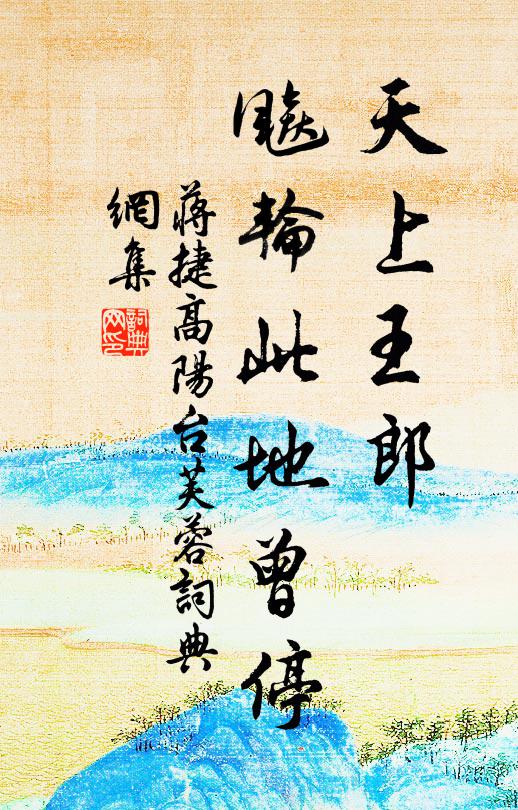 天上王郎
飈輪此地曾停
蔣捷高陽台芙蓉詞典
網集
詞典
网印